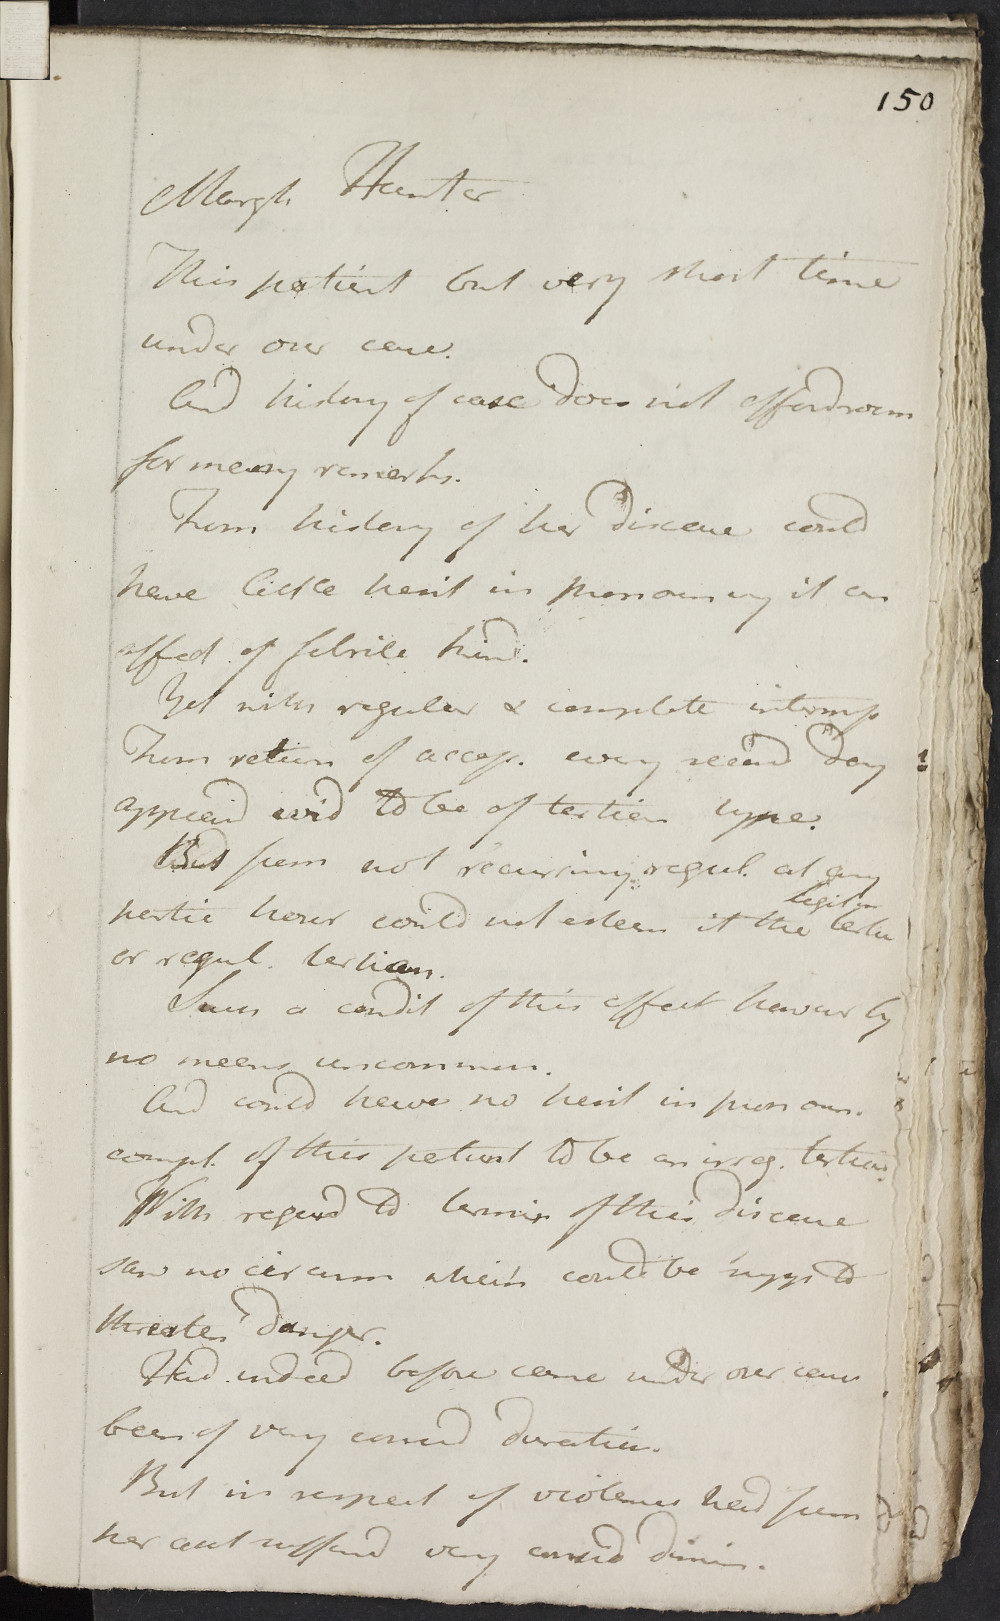 150
Margt Hunter
This patient but very short time
under our care.
And history of case does not afford room
for many remarks.
From history of her disease could
have little hesit in pronouncing it an
affect of febrile kind.
Yet with regular & complete intermis
From return of access. every second day
appeard evid to be of tertian type.
But from not recurring regul. at any
legitim
partic hour could not esteem it the tertn
or regul. tertian.
Such a condit of this affect howevr by
no means uncommon.
And could have no hesit in pronoun.
compl. of this patient to be an irreg. tertian
With regard to termin of this disease
saw no circum which could be suppd to
threaten danger.
Had indeed before came under our care
been of very consid duration.
But in respect of violence had from
her acct sufferd very consid dimin.